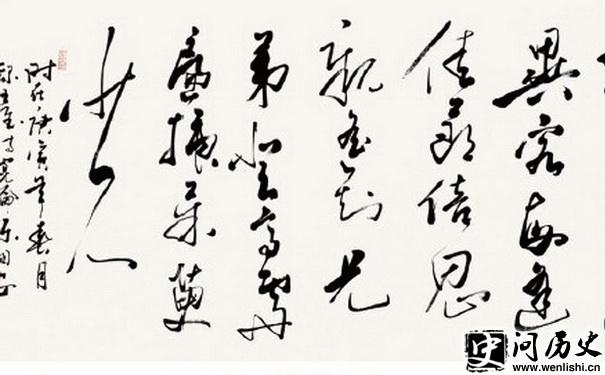 異客每逢
佳節倍思
親遥知兄
弟登高處
遍插茱萸
少一人
时在庚寅年春月
史
问历史
www.wenlishi.cn